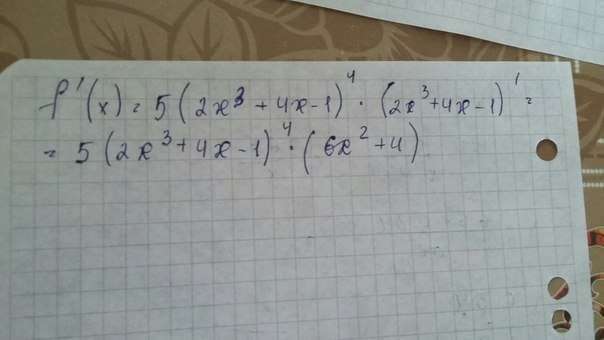 f'(x) = 5(2x³+4x-1)⁴ · (2x³+4x-1)' =
= 5(2x³+4x-1)⁴ · (6x²+4)